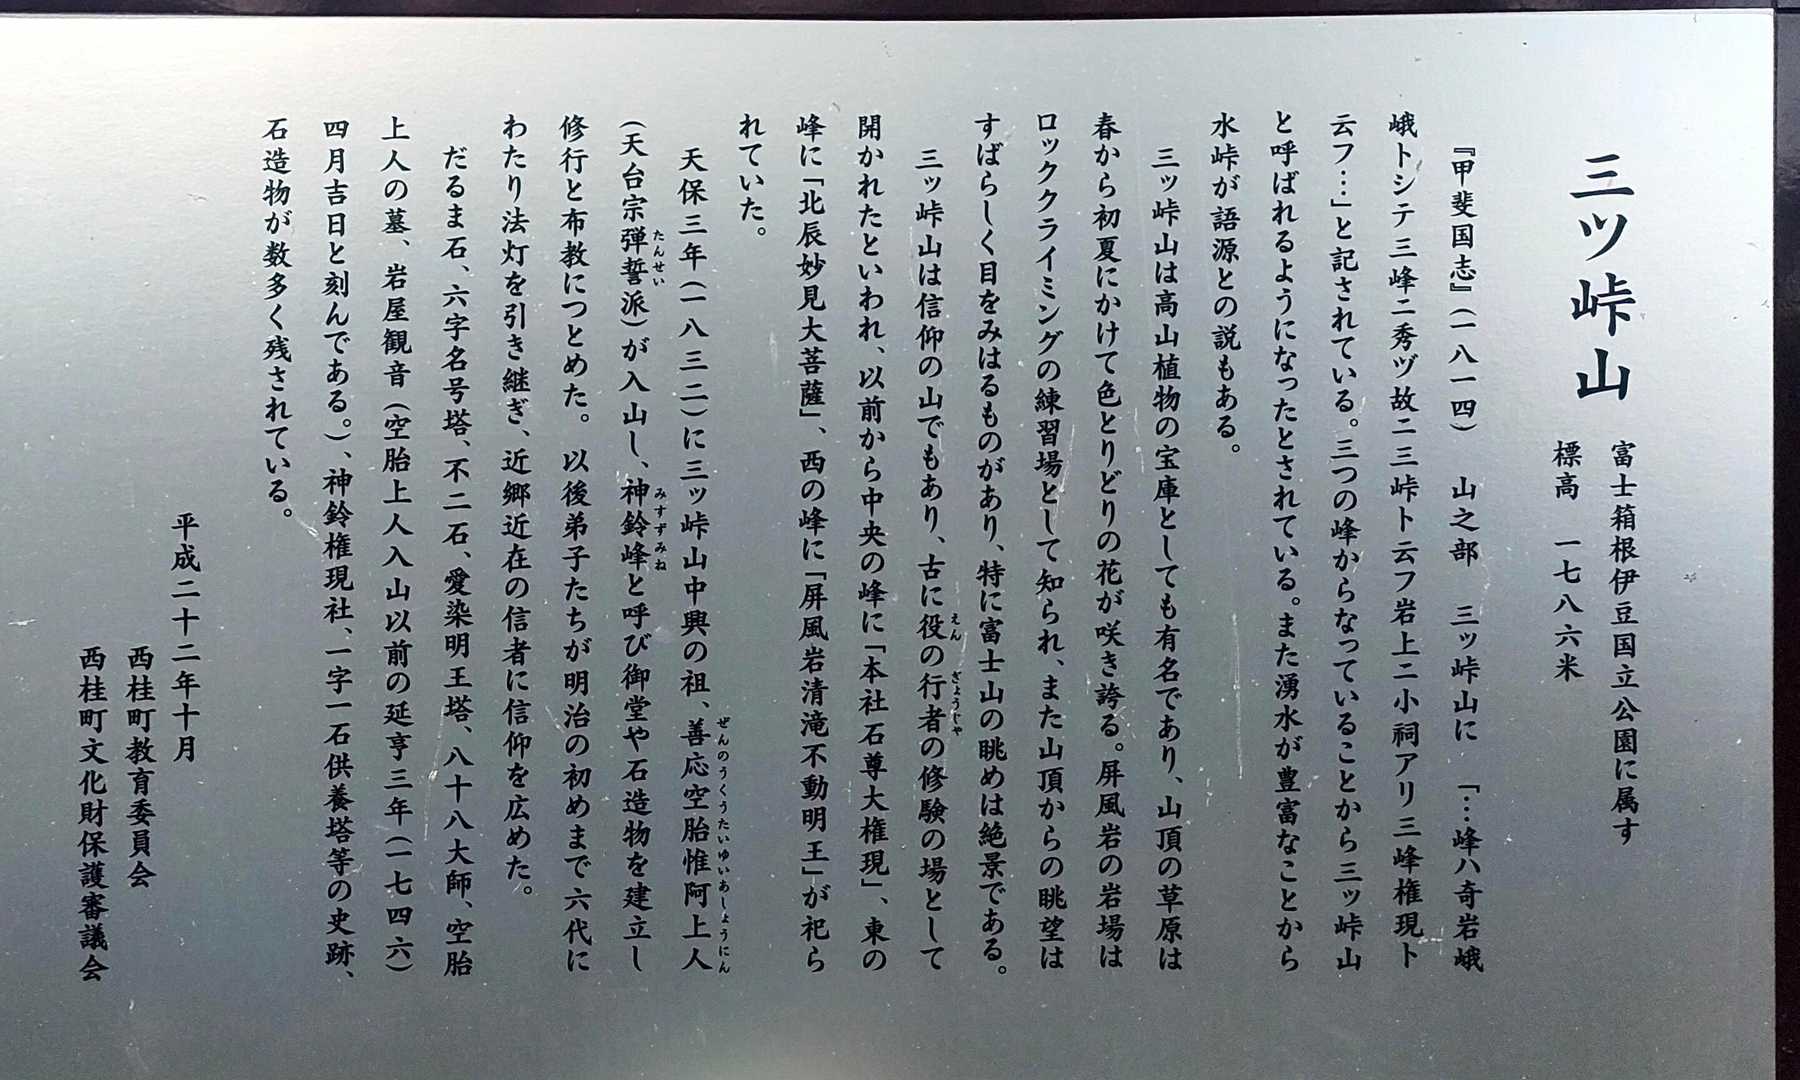 三ッ峠山
富士箱根伊豆国立公園に属す
標高 一七八六米
『甲斐国志』（一八一四） 山之部 三ッ峠山に 「…峰ハ奇岩峨
峨トシテ三峰ニ秀ヅ故ニ三峠ト云フ岩上ニ小祠アリ三峰権現ト
云フ…」と記されている。三つの峰からなっていることから三ッ峠山
と呼ばれるようになったとされている。また湧水が豊富なことから
水峠が語源との説もある。
三ッ峠山は高山植物の宝庫としても有名であり、山頂の草原は
春から初夏にかけて色とりどりの花が咲き誇る。屏風岩の岩場は
ロッククライミングの練習場として知られ、また山頂からの眺望は
すばらしく目をみはるものがあり、特に富士山の眺めは絶景である。
三ッ峠山は信仰の山でもあり、古に役の行者の修験の場として
えん ぎょうじゃ
開かれたといわれ、以前から中央の峰に「本社石尊大権現」、東の
峰に「北辰妙見大菩薩」、西の峰に「屏風岩清滝不動明王」が祀ら
れていた。
天保三年（一八三二）に三ッ峠山中興の祖、善応空胎惟阿上人
ぜんのうくうたいゆいあしょうにん
（天台宗弾誓派）が入山し、神鈴峰と呼び御堂や石造物を建立し
たんせい みすずみね
修行と布教につとめた。以後弟子たちが明治の初めまで六代に
わたり法灯を引き継ぎ、近郷近在の信者に信仰を広めた。
だるま石、六字名号塔、不二石、愛染明王塔、八十八大師、空胎
上人の墓、岩屋観音（空胎上人入山以前の延亨三年（一七四六）
四月吉日と刻んである。）、神鈴権現社、一字一石供養塔等の史跡、
石造物が数多く残されている。
平成二十二年十月
西桂町教育委員会
西桂町文化財保護審議会